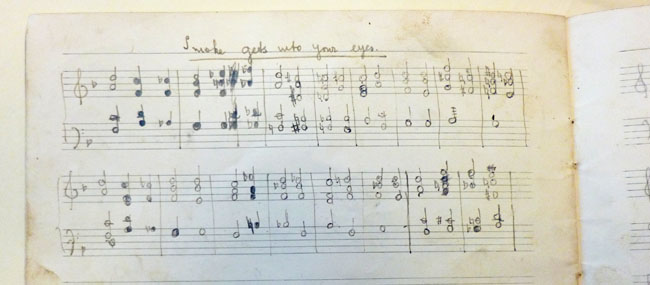 Smoke gets into your eyes.